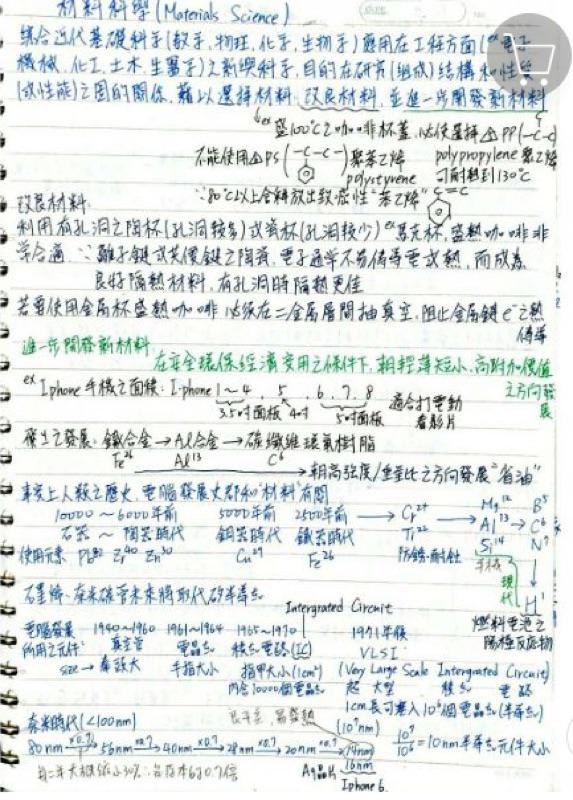 材料科學(Materials Science)
綜合近代基礎科學(數學,物理,化學,生物學)應用在工程方面(ex電子
機械,化工,土木,生醫學)之新興科學,目的在研究(組成)結構和性質
(或性能)之間的關係,藉以選擇材料,改良材料,並進一步開發新材料
ex 盛100℃之咖啡杯蓋,必使選擇 PP(-C-C)
不能使用 PS (-C-C-) 聚苯乙烯 polypropylene 聚乙烯
polystyrene 可耐熱到130℃
∵80℃以上會解放出致癌性"苯乙烯" C=C
改良材料:
利用有孔洞之陶杯(孔洞較多)或瓷杯(孔洞較少) ex 馬克杯,盛熱咖啡非
常合適 ∵離子鍵或共價鍵之陶瓷,電子通常不易傳導電或熱,而成為
良好隔熱材料,有孔洞時隔熱更佳
若要使用金屬杯盛熱咖啡必須在二金屬層間抽真空,阻止金屬鍵e⁻之熱
傳導
進一步開發新材料
在安全環保經濟實用之條件下,朝輕薄短小,高附加價值
之方向發展
ex Iphone 手機之面積: I-phone 1~4, 5, 6, 7, 8 適合打電動
3.5吋面板 4吋 5吋面板 看影片
之發展: 鐵合金→Al合金→碳纖維環氧樹脂
Fe26 Al13 C6
→朝高強度/重量比之方向發展"省油"
事實上人類之歷史,電腦發展史都和"材料"有關
10000~6000年前 5000年前 2500年前 → Cr24 → Mg12 B5
石器~陶器時代 銅器時代 鐵器時代 Ti22 Al13 → C6
使用元素 Pb82 Zr40 Zn30 Cu29 Fe26 防銹.耐蝕 Si14 N7
手機 現代 H1
石墨烯,奈米碳管未來將取代矽半導體
Intergrated Circuit
燃料電池之
陽極反應物
電腦發展 1940~1960 1961~1964 1965~1970 1971年後
所用之元件: 真空管 電晶體 積體電路(IC) VLSI
size→ 手指大小 指甲大小(1cm²) (Very Large Scale Intergrated Circuit)
內含10000個電晶體 超大型 積體 電路
1cm長可塞入10⁶個電晶體(半導體)
奈米時代(<100nm) 易發熱 (10⁷nm)
80nm ×0.7→ 56nm ×0.7→ 40nm ×0.7→ 28nm ×0.7→ 20nm ×0.7→ 14nm
10⁷/10⁶=10nm半導體元件大小
每二年大概縮小30% ∴每次大約0.7倍 A9晶片 16nm
Iphone 6.